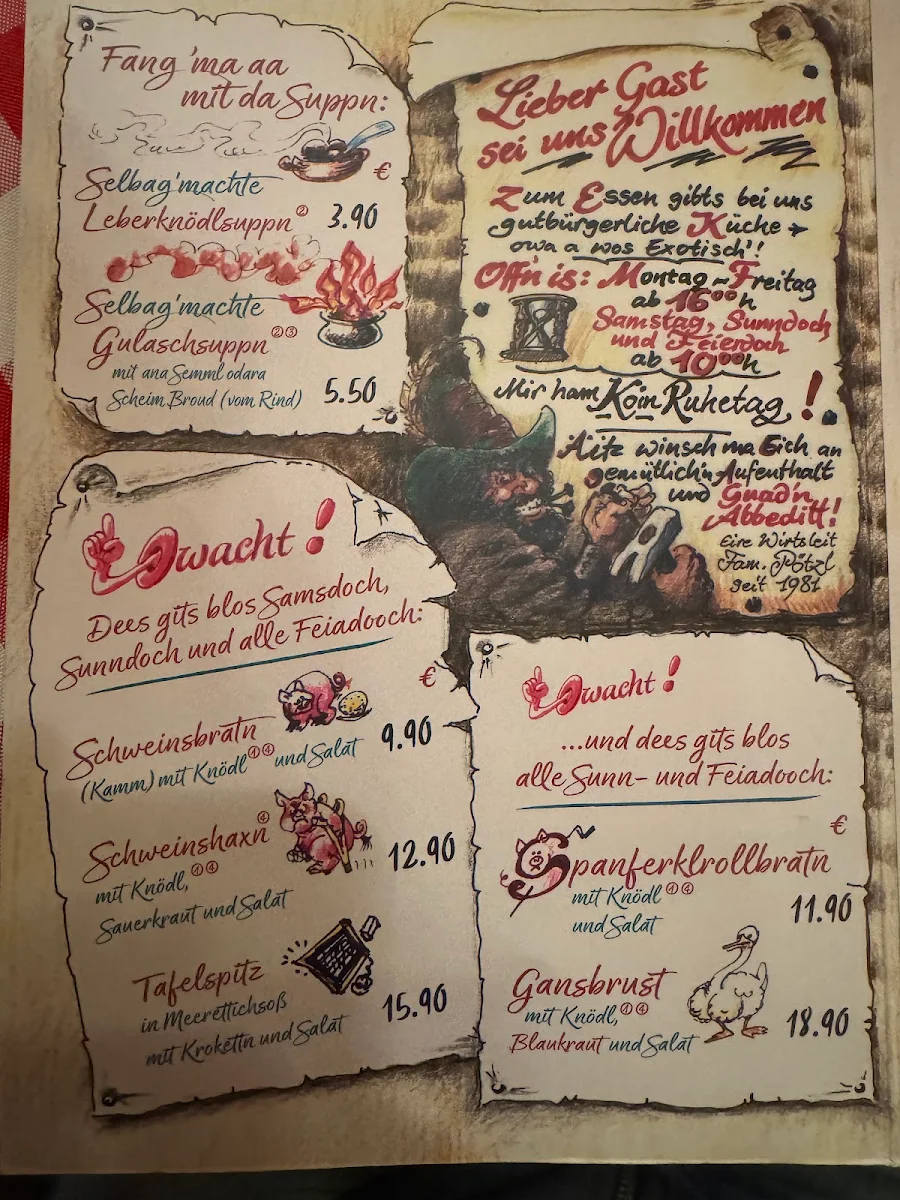 Fang'ma aa
mit da Suppn:
€
Selbag'machte
Leberknödlsuppn② 3.90
Selbag'machte
Gulaschsuppn②③
mit ana Semml odara
Scheim Broud (vom Rind) 5.50
Lieber Gast
sei uns Willkommen
Zum Essen gibts bei uns
gutbürgerliche Küche +
owa a wos Exotisch'!
Off'n is: Montag ~ Freitag
ab 16⁰⁰h
Samstag, Sunndoch
und Feierdoch
ab 10⁰⁰h
Mir ham Koin Ruhetag!
Aitz winsch ma Eich an
gemütlich'n Aufenthalt
und Guad'n
Abbeditt!
Eire Wirtsleit
Fam. Pötzl
seit 1981
Owacht!
Dees gits blos Samsdoch,
Sunndoch und alle Feiadooch:
€
Schweinsbratn
(Kamm) mit Knödl①④ und Salat 9.90
Schweinshaxn④
mit Knödl,①④ 12.90
Sauerkraut und Salat
Tafelspitz
in Meerettichsoß 15.90
mit Krokettn und Salat
Owacht!
...und dees gits blos
alle Sunn- und Feiadooch:
€
Spanferklrollbratn
mit Knödl①④ 11.90
und Salat
Gansbrust
mit Knödl,①④ 18.90
Blaukraut und Salat